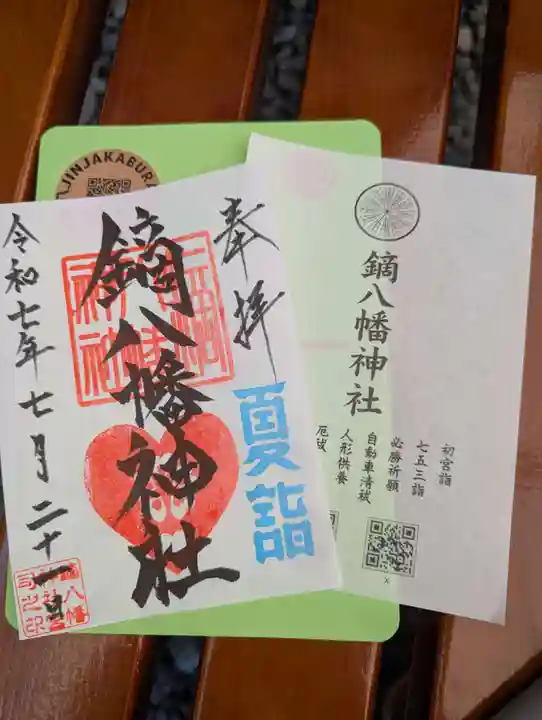 JINJAKABURA
奉拝
夏詣
鏑八幡神社
令和七年七月二十一日
鏑八幡神社
初宮詣
七五三詣
必勝祈願
自動車清祓
人形供養
厄祓
X